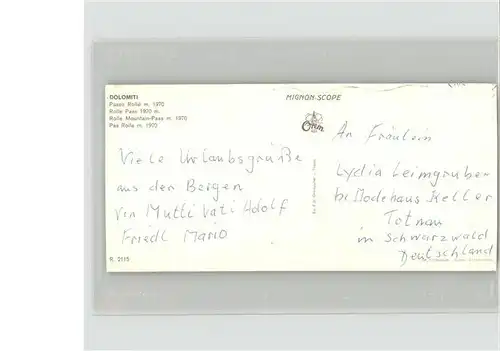 DOLOMITI
Passo Rolle m. 1970
Rolle Pass 1970 m.
Rolle Mountain-Pass m. 1970
Pas Rolle m. 1970
MIGNON-SCOPE
Viele Urlaubsgrüße
aus den Bergen
von Mutti Vati Adolf
Friedl Mario
R. 2115
An Fräulein
Lydia Leimgruber
bi Modehaus Keller
Totnau
in Schwarzwald
Deutschland